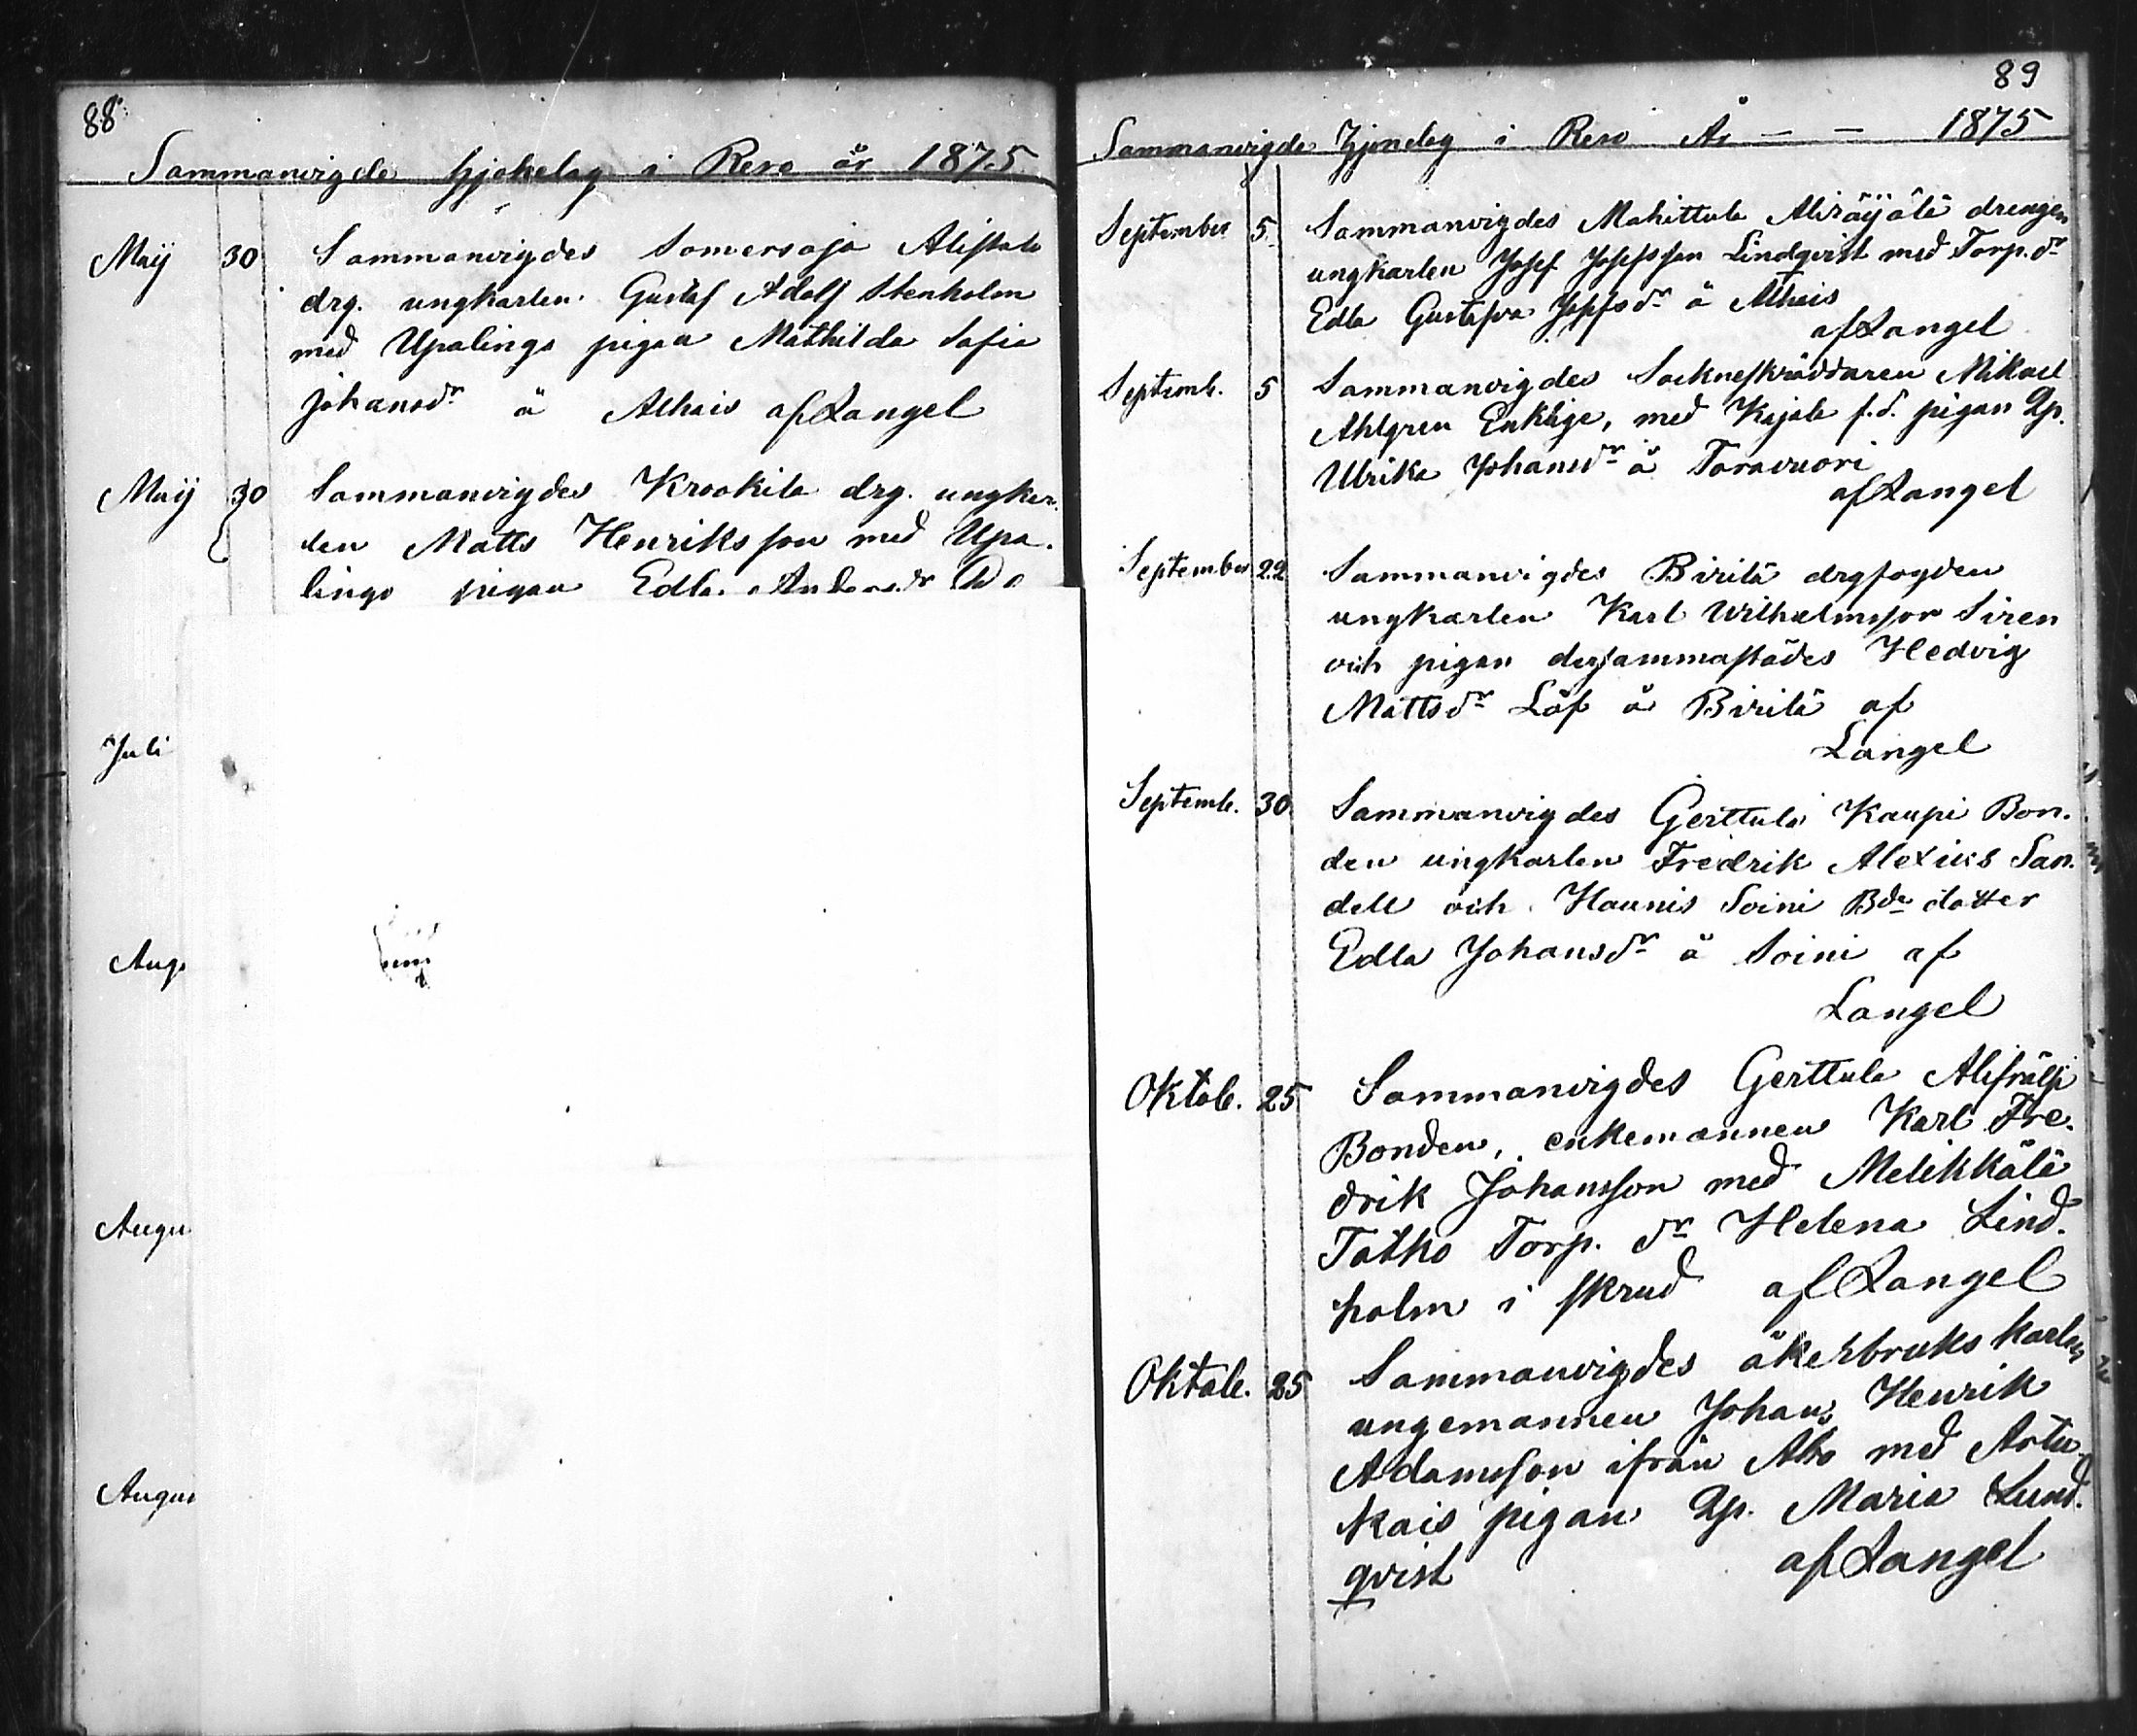 88
Sammanvigde hjonelag i Reso år 1875
Maij 30 Sammanvigdes Somersoja Alistalo
drg. ungkarlen Gustaf Adolf Stenholm
med Upalingo pigan Mathilda Sofia
Johansdr å Alhais af Langel
Maij 30 Sammanvigdes Krookila drg. ungkar-
len Matts Henriksson med Upa-
lingo pigan Edla Andersdr
Juli
Aug.
Augu
Augus
89
Sammanvigde Hjonelag i Reso År — — 1875
September 5 Sammanvigdes Mahittula Aliräijälä drengen
ungkarlen Josef Josefsson Lindqvist med Torp. dr
Edla Gustafva Josefsdr å Alhais
af Langel
Septemb. 5 Sammanvigdes Sockneskräddaren Mikael
Ahlgren Enkling, med Kajala f.d. pigan
Ulrika Johansdr å Taravuori
af Langel
September 22 Sammanvigdes Birilä drgfogden
ungkarlen Karl Wilhelmsson Siren
och pigan dersammastädes Hedvig
Mattsdr Löf å Birilä af
Langel
Septemb. 30 Sammanvigdes Gerttula Kaupi Bon-
den ungkarlen Fredrik Alexius San-
dell och Haunis Soini Bde dotter
Edla Johansdr å Soini af
Langel
Oktob. 25 Sammanvigdes Gerttula Alifrälsi
Bonden, enkemannen Karl Fre-
drik Johansson med Melikkälä
Tatko Torp. dr Helena Lind-
holm i skrud af Langel
Oktob. 25 Sammanvigdes åkerbruks karlen
ungemannen Johan Henrik
Adamsson ifrån Abo med Artu-
kais pigan Maria Lund-
qvist af Langel